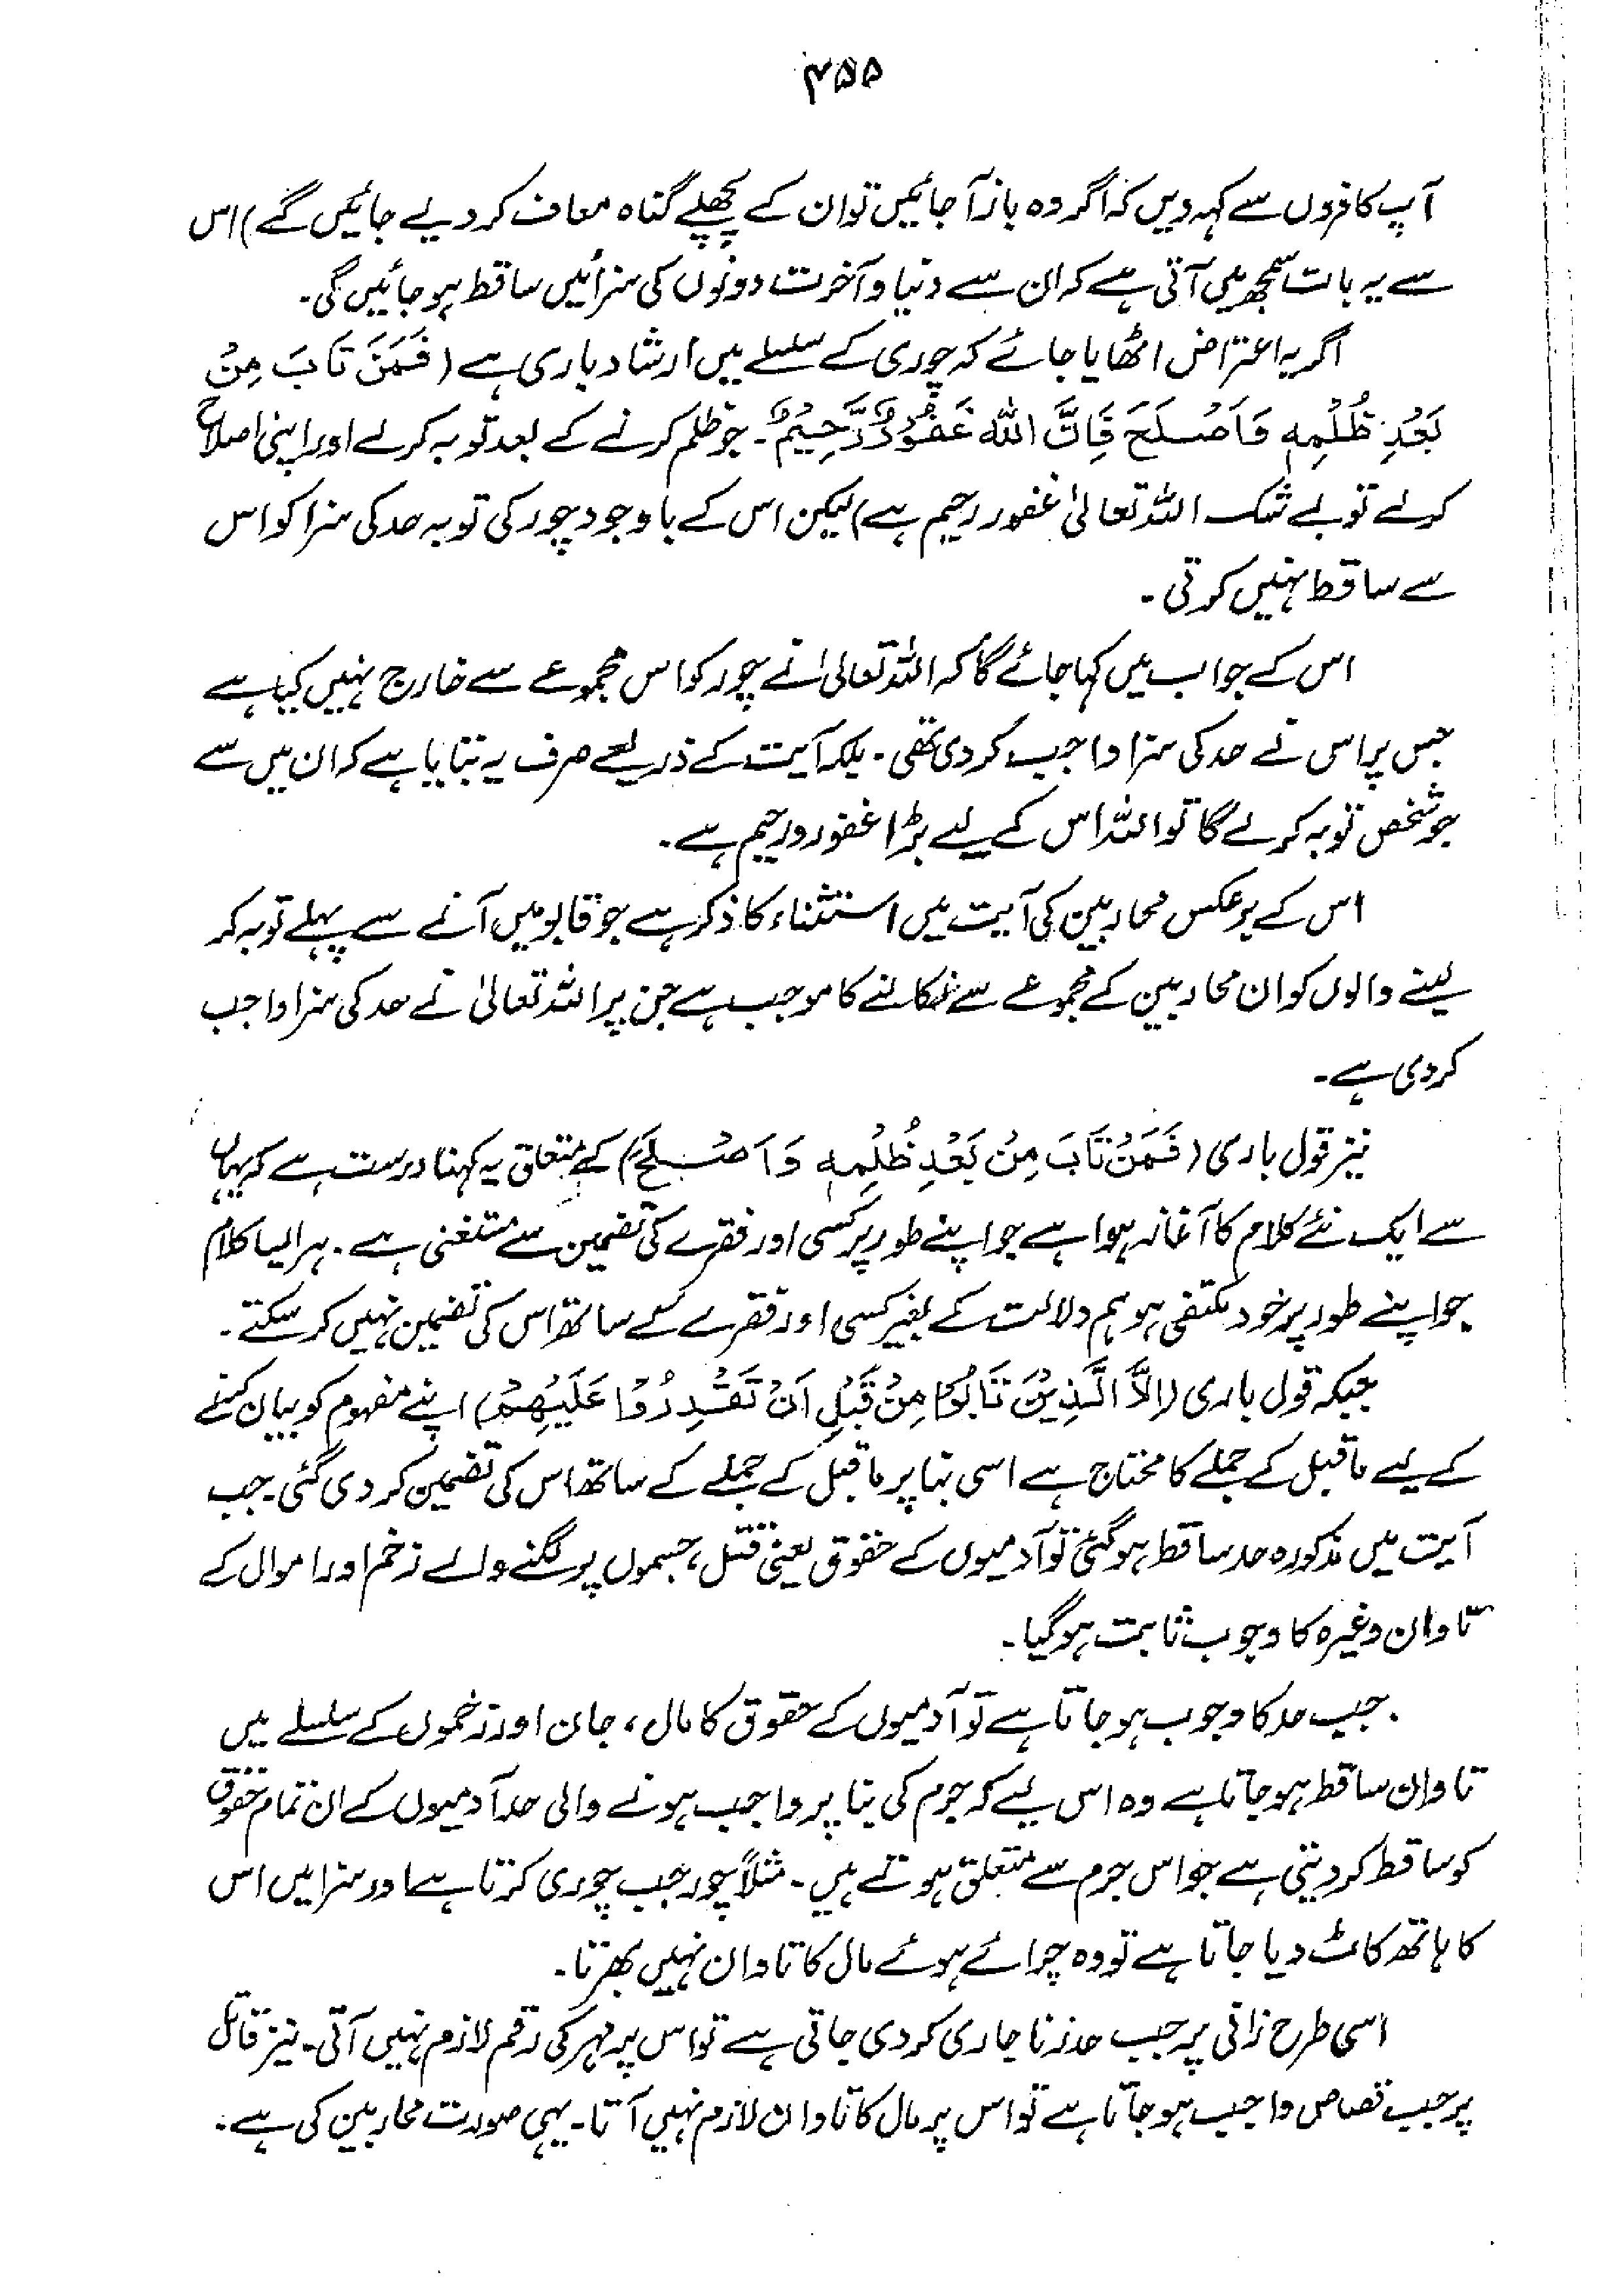 ۴۵۵
آپ کافروں سے کہہ دیں کہ اگر وہ باز آ جائیں تو ان کے پچھلے گناہ معاف کر دیے جائیں گے) اس
سے یہ بات سمجھ میں آتی ہے کہ ان سے دنیا و آخرت دونوں کی سزائیں ساقط ہو جائیں گی۔
اگر یہ اعتراض اٹھایا جائے کہ چوری کے سلسلے میں ارشاد باری ہے (فَمَنْ تَابَ مِنْ
بَعْدِ ظُلْمِهٖ وَاَصْلَحَ فَاِنَّ اللّٰهَ غَفُوْرٌ رَّحِيْمٌ۔ جو ظلم کرنے کے بعد توبہ کرلے اور اپنی اصلاح
کرلے تو بے شک اللہ تعالیٰ غفور رحیم ہے) لیکن اس کے باوجود چور کی توبہ حد کی سزا کو اس
سے ساقط نہیں کرتی۔
اس کے جواب میں کہا جائے گا کہ اللہ تعالیٰ نے چور کو اس مجموعے سے خارج نہیں کیا ہے
جس پر اس نے حد کی سزا واجب کر دی تھی۔ بلکہ آیت کے ذریعے صرف یہ بتایا ہے کہ ان میں سے
جو شخص توبہ کرلے گا تو اللہ اس کے لیے بڑا غفور و رحیم ہے۔
اس کے برعکس محاربین کی آیت میں استثناء کا ذکر ہے جو قابو میں آنے سے پہلے توبہ کر
لینے والوں کو ان محاربین کے مجموعے سے نکالنے کا موجب ہے جن پر اللہ تعالیٰ نے حد کی سزا واجب
کر دی ہے۔
نیز قول باری (فَمَنْ تَابَ مِنْ بَعْدِ ظُلْمِهٖ وَاَصْلَحَ) کے متعلق یہ کہنا درست ہے کہ یہاں
سے ایک نئے کلام کا آغاز ہوا ہے جو اپنے طور پر کسی اور فقرے کی تضمین سے مستغنی ہے۔ ہر ایسا کلام
جو اپنے طور پر خود مکتفی ہو ہم دلالت کے بغیر کسی اور فقرے کے ساتھ اس کی تضمین نہیں کر سکتے۔
جبکہ قول باری (اِلَّا الَّذِيْنَ تَابُوْا مِنْ قَبْلِ اَنْ تَقْدِرُوْا عَلَيْهِمْ) اپنے مفہوم کو بیان کرنے
کے لیے ماقبل کے جملے کا محتاج ہے اسی بنا پر ماقبل کے جملے کے ساتھ اس کی تضمین کر دی گئی۔ جب
آیت میں مذکورہ حد ساقط ہوگئی تو آدمیوں کے حقوق یعنی قتل، جسموں پر لگنے والے زخم اور اموال کے
تاوان وغیرہ کا وجوب ثابت ہوگیا۔
جب حد کا وجوب ہو جاتا ہے تو آدمیوں کے حقوق کا مال، جان اور زخموں کے سلسلے میں
تاوان ساقط ہو جاتا ہے وہ اس لیے کہ جرم کی بنا پر واجب ہونے والی حد آدمیوں کے ان تمام حقوق
کو ساقط کر دیتی ہے جو اس جرم سے متعلق ہوتے ہیں۔ مثلاً چور جب چوری کرتا ہے اور سزا میں اس
کا ہاتھ کاٹ دیا جاتا ہے تو وہ چرائے ہوئے مال کا تاوان نہیں بھرتا۔
اسی طرح زانی پر جب حد زنا جاری کر دی جاتی ہے تو اس پر مہر کی رقم لازم نہیں آتی۔ نیز قاتل
پر جب قصاص واجب ہو جاتا ہے تو اس پر مال کا تاوان لازم نہیں آتا۔ یہی صورت محاربین کی ہے۔